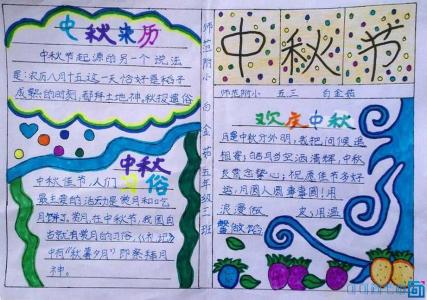 中秋来历
中秋节起源的另一个说法
是:农历八月十五这一天恰好是稻子
成熟的时刻,都拜土地神,秋报遗俗
中秋
习俗
中秋佳节,人们
最主要的活动是赏月和吃
月饼了。赏月,在中秋节,我国自
古就有赏月的习俗,《礼记》
中有“秋暮夕月”即祭拜月
神。
师范附小 白金茹 五年级三班
中秋节
师范附小 五三 白金茹
欢庆中秋
月是中秋分外明,我把问候送
相寄;皓月当空洒清辉,中秋
良宵念挚心;祝愿佳节多好
运,月圆人圆事事圆!用
浪漫做 皮,用温
馨做馅